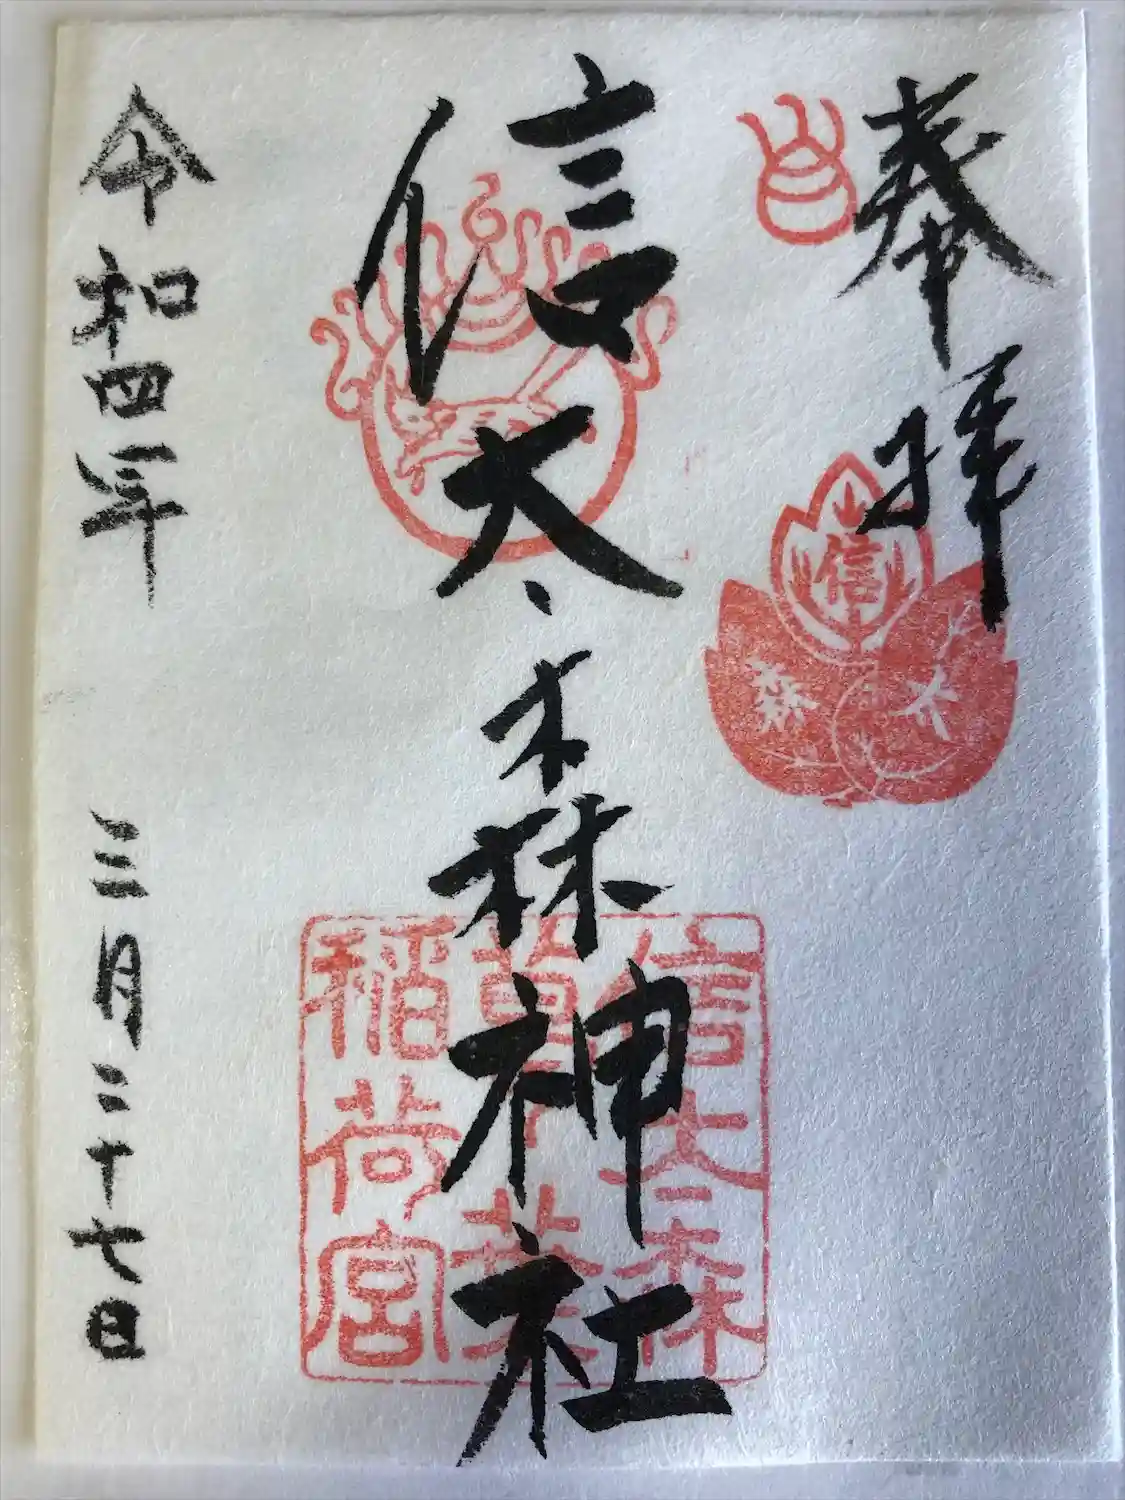 奉拝
信
太
森
信太森神社
信太森
葛葉
稲荷宮
令和四年 三月二十七日